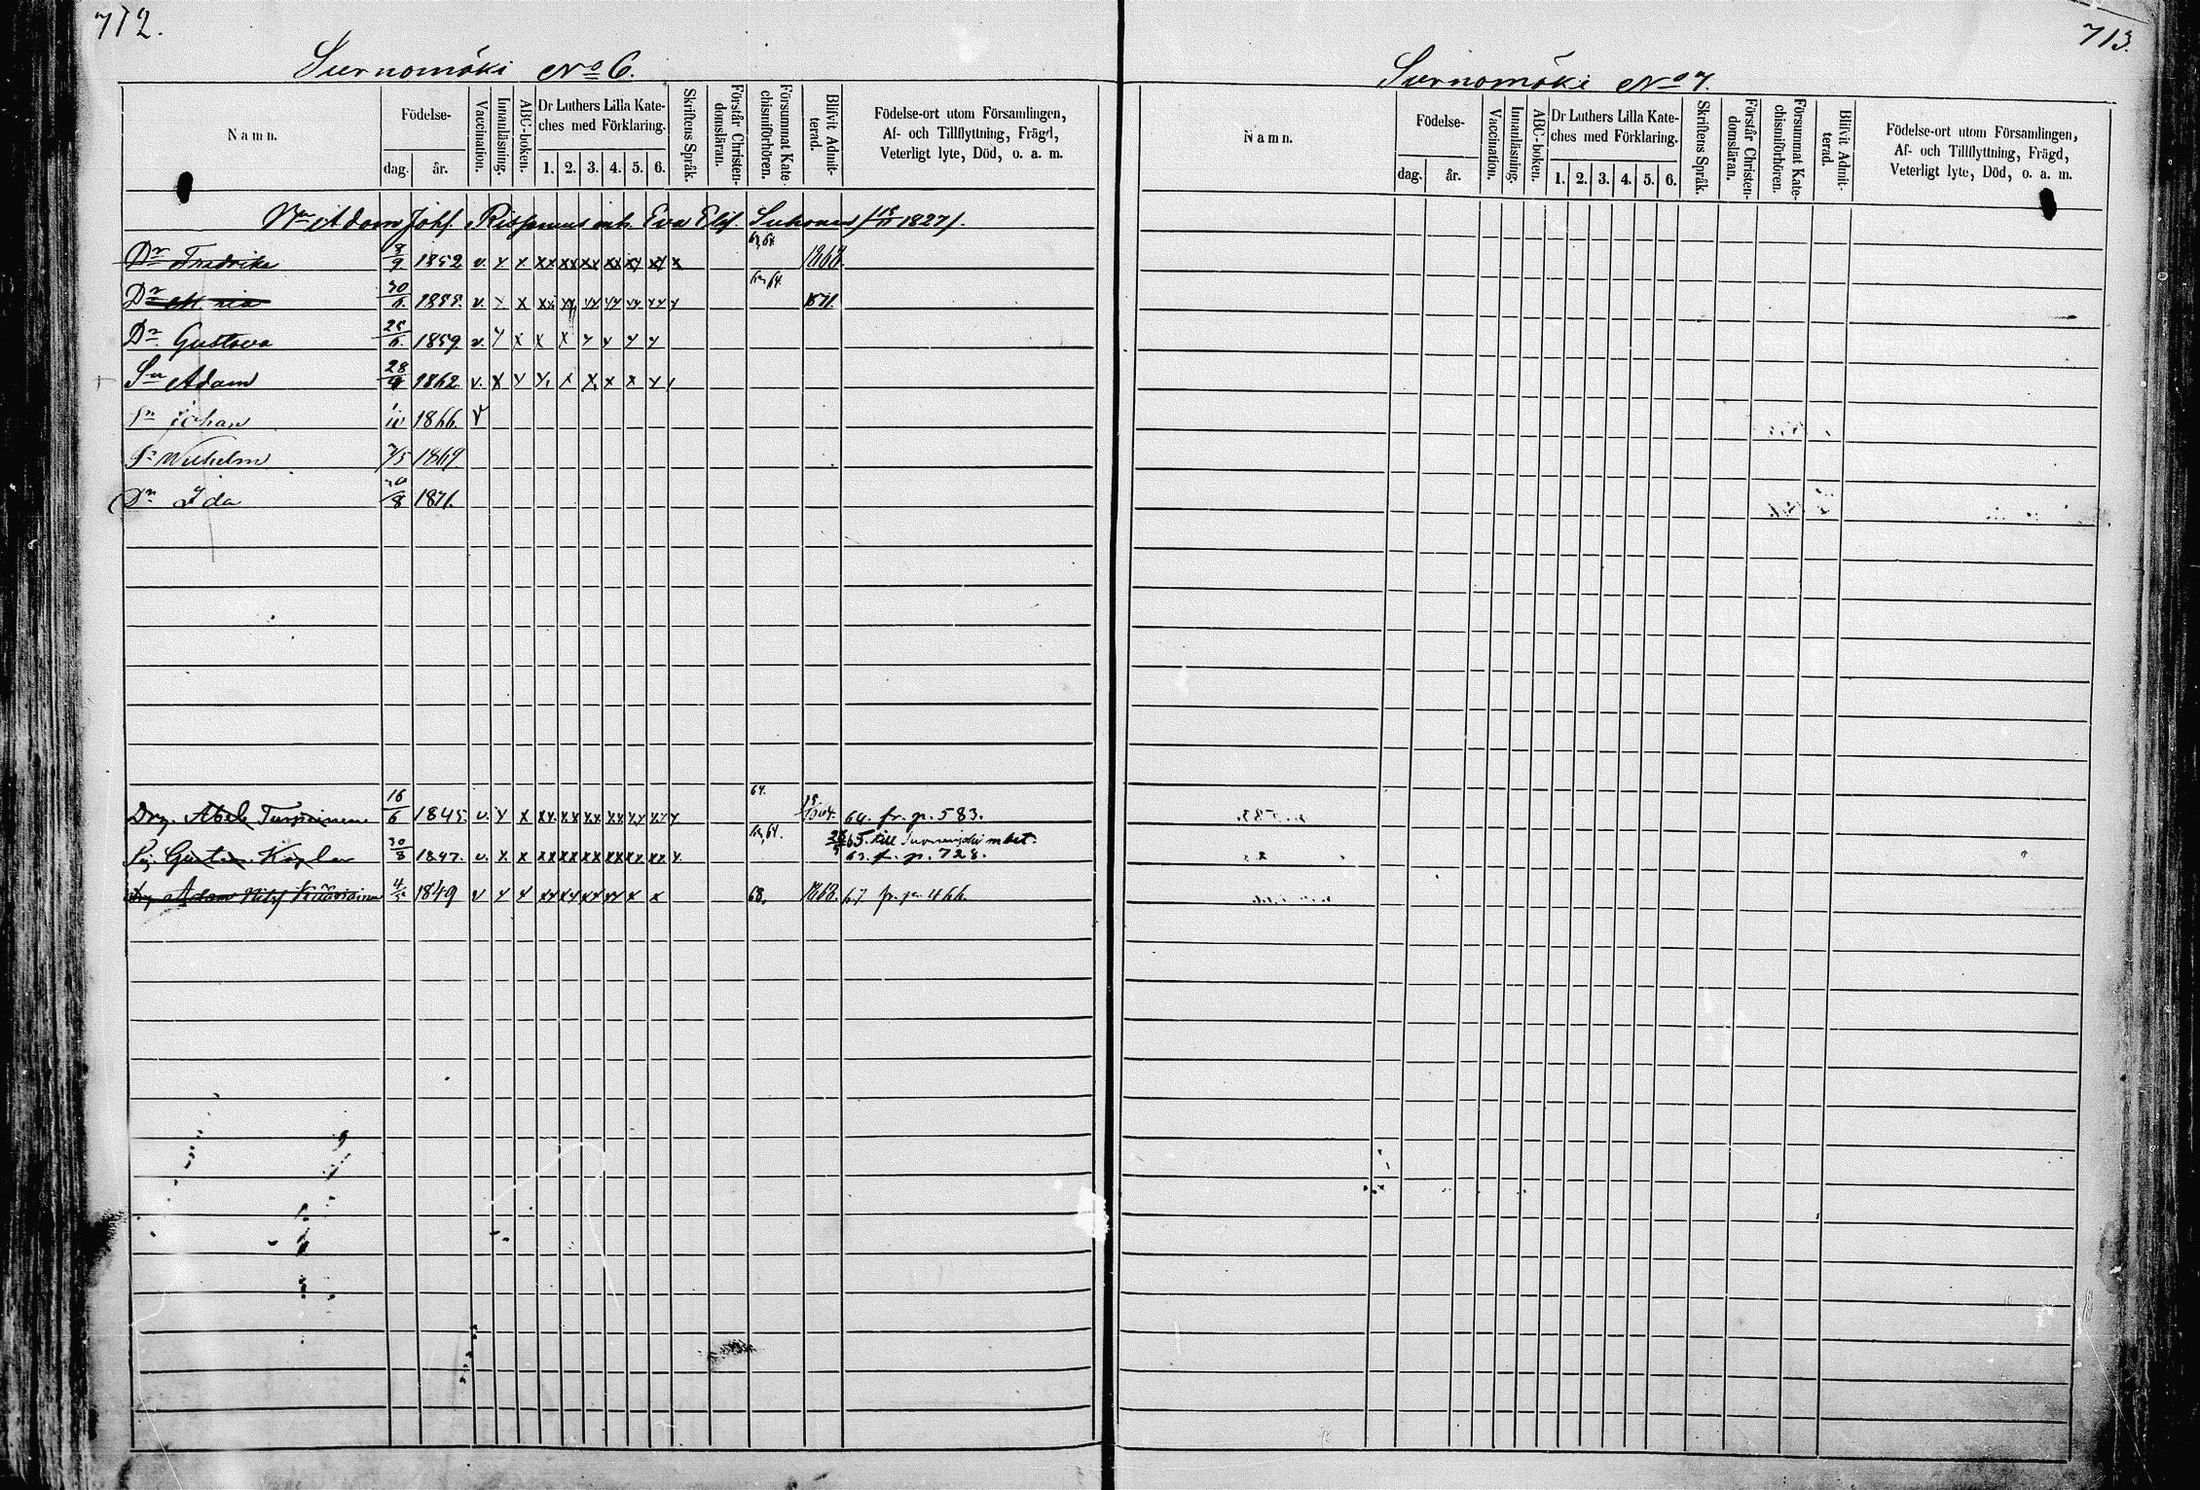 712.
Surnomäki No 6.
Namn.
Födelse-
dag.
år.
Vaccination.
Innanläsning.
ABC-boken.
Dr Luthers Lilla Kate-
ches med Förklaring.
1. 2. 3. 4. 5. 6.
Skriftens Språk.
Förstår Christen-
domsläran.
Försummat Kate-
chismiförhören.
Blifvit Admit-
terad.
Födelse-ort utom Församlingen,
Af- och Tillflyttning, Frägd,
Veterligt lyte, Död, o. a. m.
Adam Johs. Eva Elis. 1827
Dr Fredrika 8/9 1852 v. x x xx xx xx xx xx xx x 1868.
Dr 30/6 1855. v. x x xx xx xx xx xx xx x 1871
Dr Gustava 25/6 1859 v. x x x x x x x x
Sn Adam 28/9 1862 v. x x x x x x x x
Sn Johan 1/10 1866. v
Sn Wilhelm 7/5 1869
Dr Ida 8 1871.
Drg. Abel Turpeinen 16/6 1845. v. x x xx xx xx xx xx xx x 64. 64. fr. p. 583.
Gustav 30/8 1847. v. x x xx xx xx xx xx xx x 65. till
63. fr. p. 728.
Drg Adam 4 1849 v x x xx xx xx xx x x 68. 1868. 67 fr. p. 466.
713.
Surnomäki No 7.
Namn.
Födelse-
dag.
år.
Vaccination.
Innanläsning.
ABC-boken.
Dr Luthers Lilla Kate-
ches med Förklaring.
1. 2. 3. 4. 5. 6.
Skriftens Språk.
Förstår Christen-
domsläran.
Försummat Kate-
chismiförhören.
Blifvit Admit-
terad.
Födelse-ort utom Församlingen,
Af- och Tillflyttning, Frägd,
Veterligt lyte, Död, o. a. m.